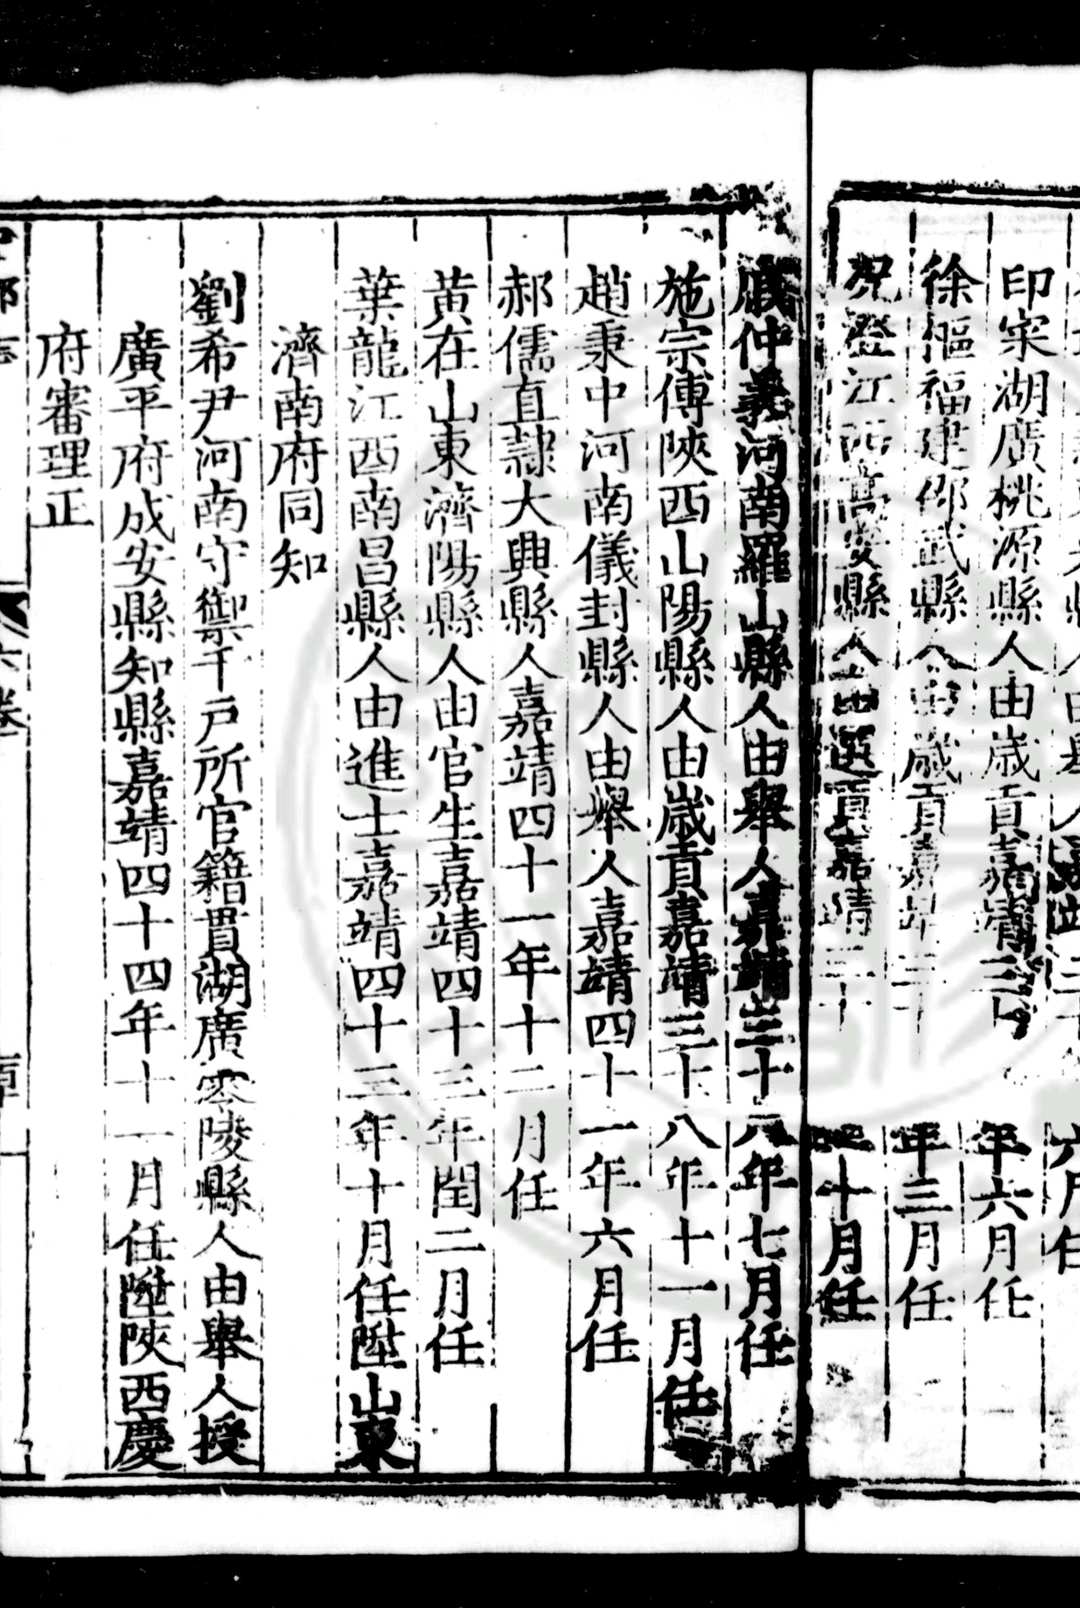 六月任
印寀湖廣桃源縣人由歲貢嘉靖三十 年六月任
徐樞福建邵武縣人由歲貢嘉靖三十 年三月任
況澄江西高安縣人由選貢嘉靖三十 十月任
仲義河南羅山縣人由舉人嘉靖三十八年七月任
施宗傅陝西山陽縣人由歲貢嘉靖三十八年十一月任
趙秉中河南儀封縣人由舉人嘉靖四十一年六月任
郝儒直隸大興縣人嘉靖四十一年十二月任
黄在山東濟陽縣人由官生嘉靖四十三年閏二月任
葉龍江西南昌縣人由進士嘉靖四十三年十月任陞山東
濟南府同知
劉希尹河南守禦千戶所官籍貫湖廣零陵縣人由舉人授
廣平府成安縣知縣嘉靖四十四年十一月任陞陝西慶
府審理正
六卷